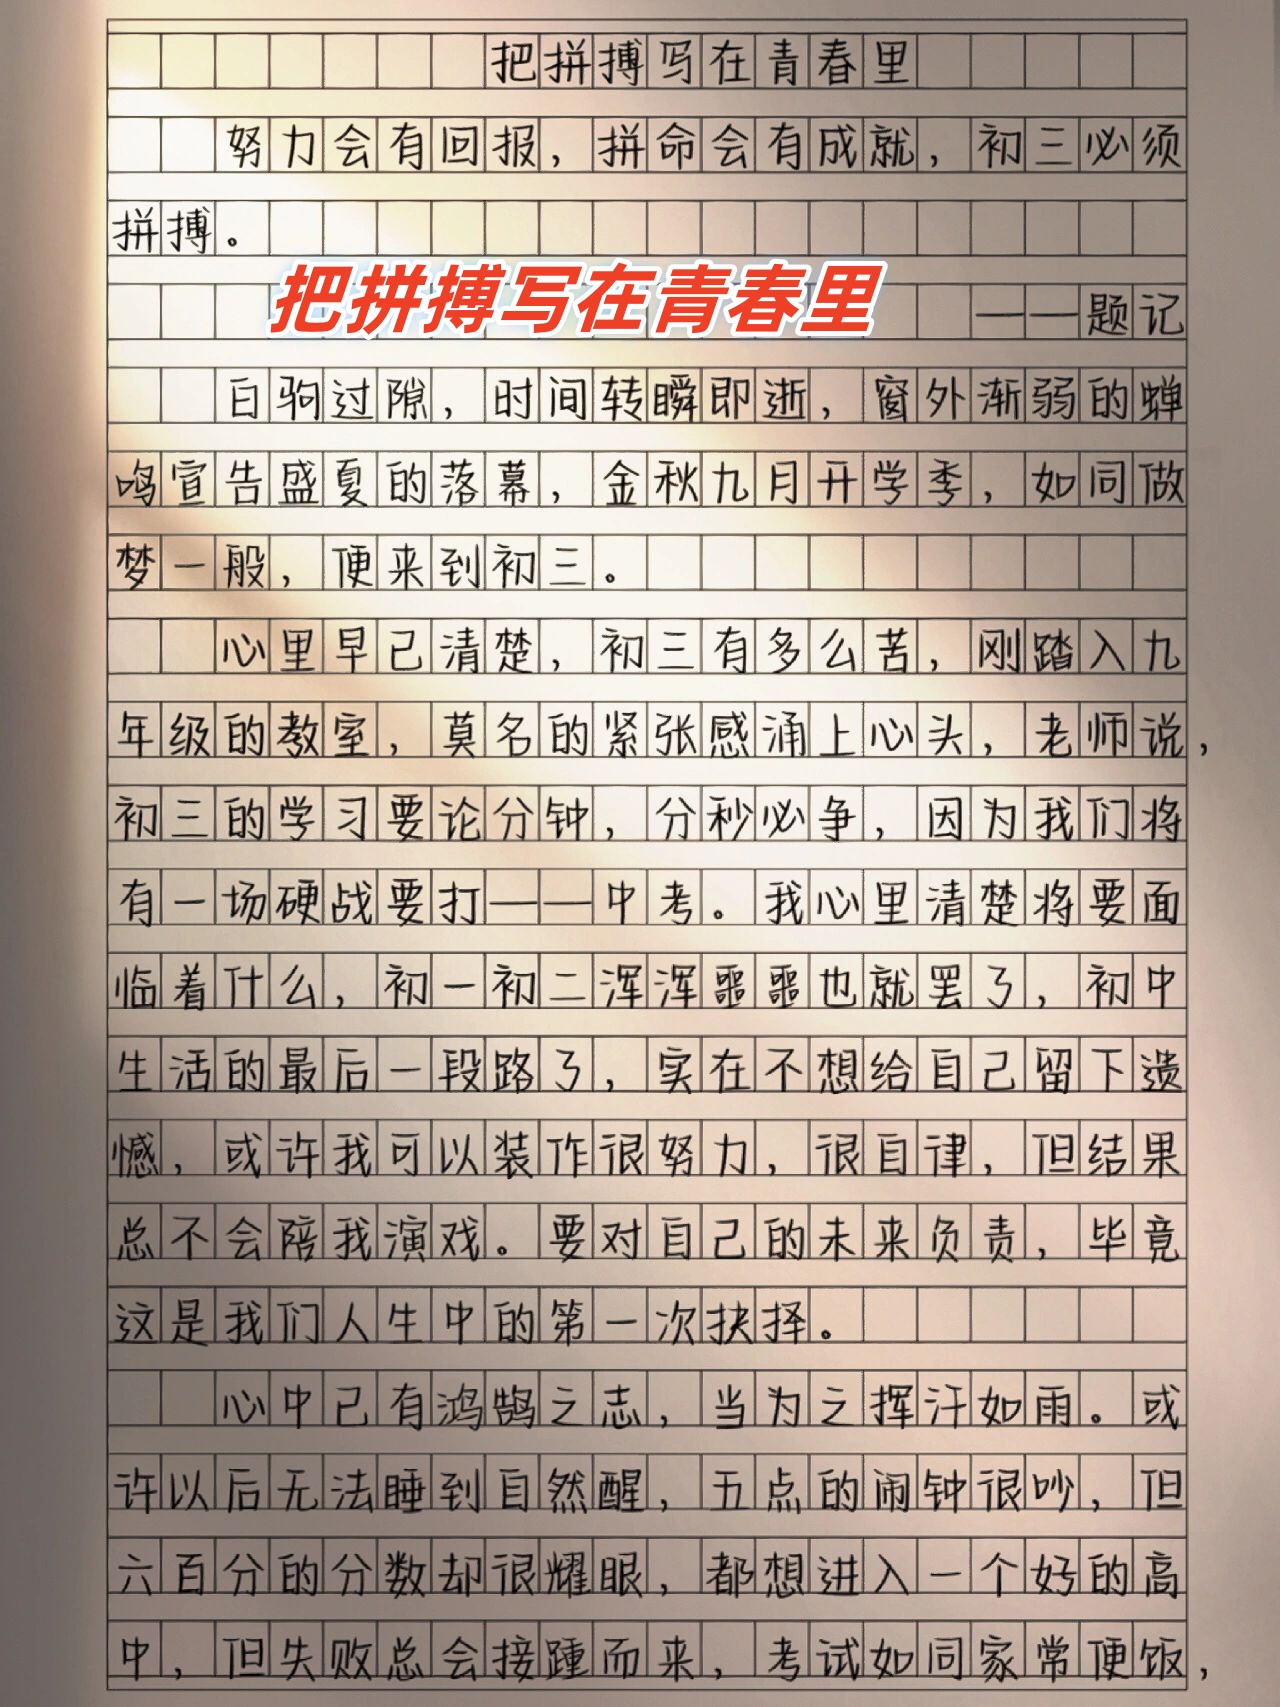 把拼搏写在青春里
努力会有回报，拼命会有成就，初三必须
拼搏。
把拼搏写在青春里
——题记
白驹过隙，时间转瞬即逝，窗外渐弱的蝉
鸣宣告盛夏的落幕，金秋九月开学季，如同做
梦一般，便来到初三。
心里早已清楚，初三有多么苦，刚踏入九
年级的教室，莫名的紧张感涌上心头，老师说，
初三的学习要论分钟，分秒必争，因为我们将
有一场硬战要打——中考。我心里清楚将要面
临着什么，初一初二浑浑噩噩也就罢了，初中
生活的最后一段路了，实在不想给自己留下遗
憾，或许我可以装作很努力，很自律，但结果
总不会陪我演戏。要对自己的未来负责，毕竟
这是我们人生中的第一次抉择。
心中已有鸿鹄之志，当为之挥汗如雨。或
许以后无法睡到自然醒，五点的闹钟很吵，但
六百分的分数却很耀眼，都想进入一个好的高
中，但失败总会接踵而来，考试如同家常便饭，